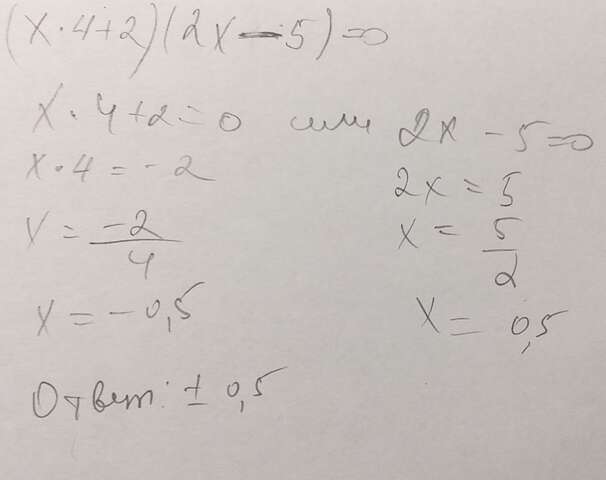 (x·4+2)(2x-5)=0
x·4+2=0 или 2x-5=0
x·4=-2
2x=5
x=-2/4
x=5/2
x=-0,5
x=0,5
Ответ: ±0,5